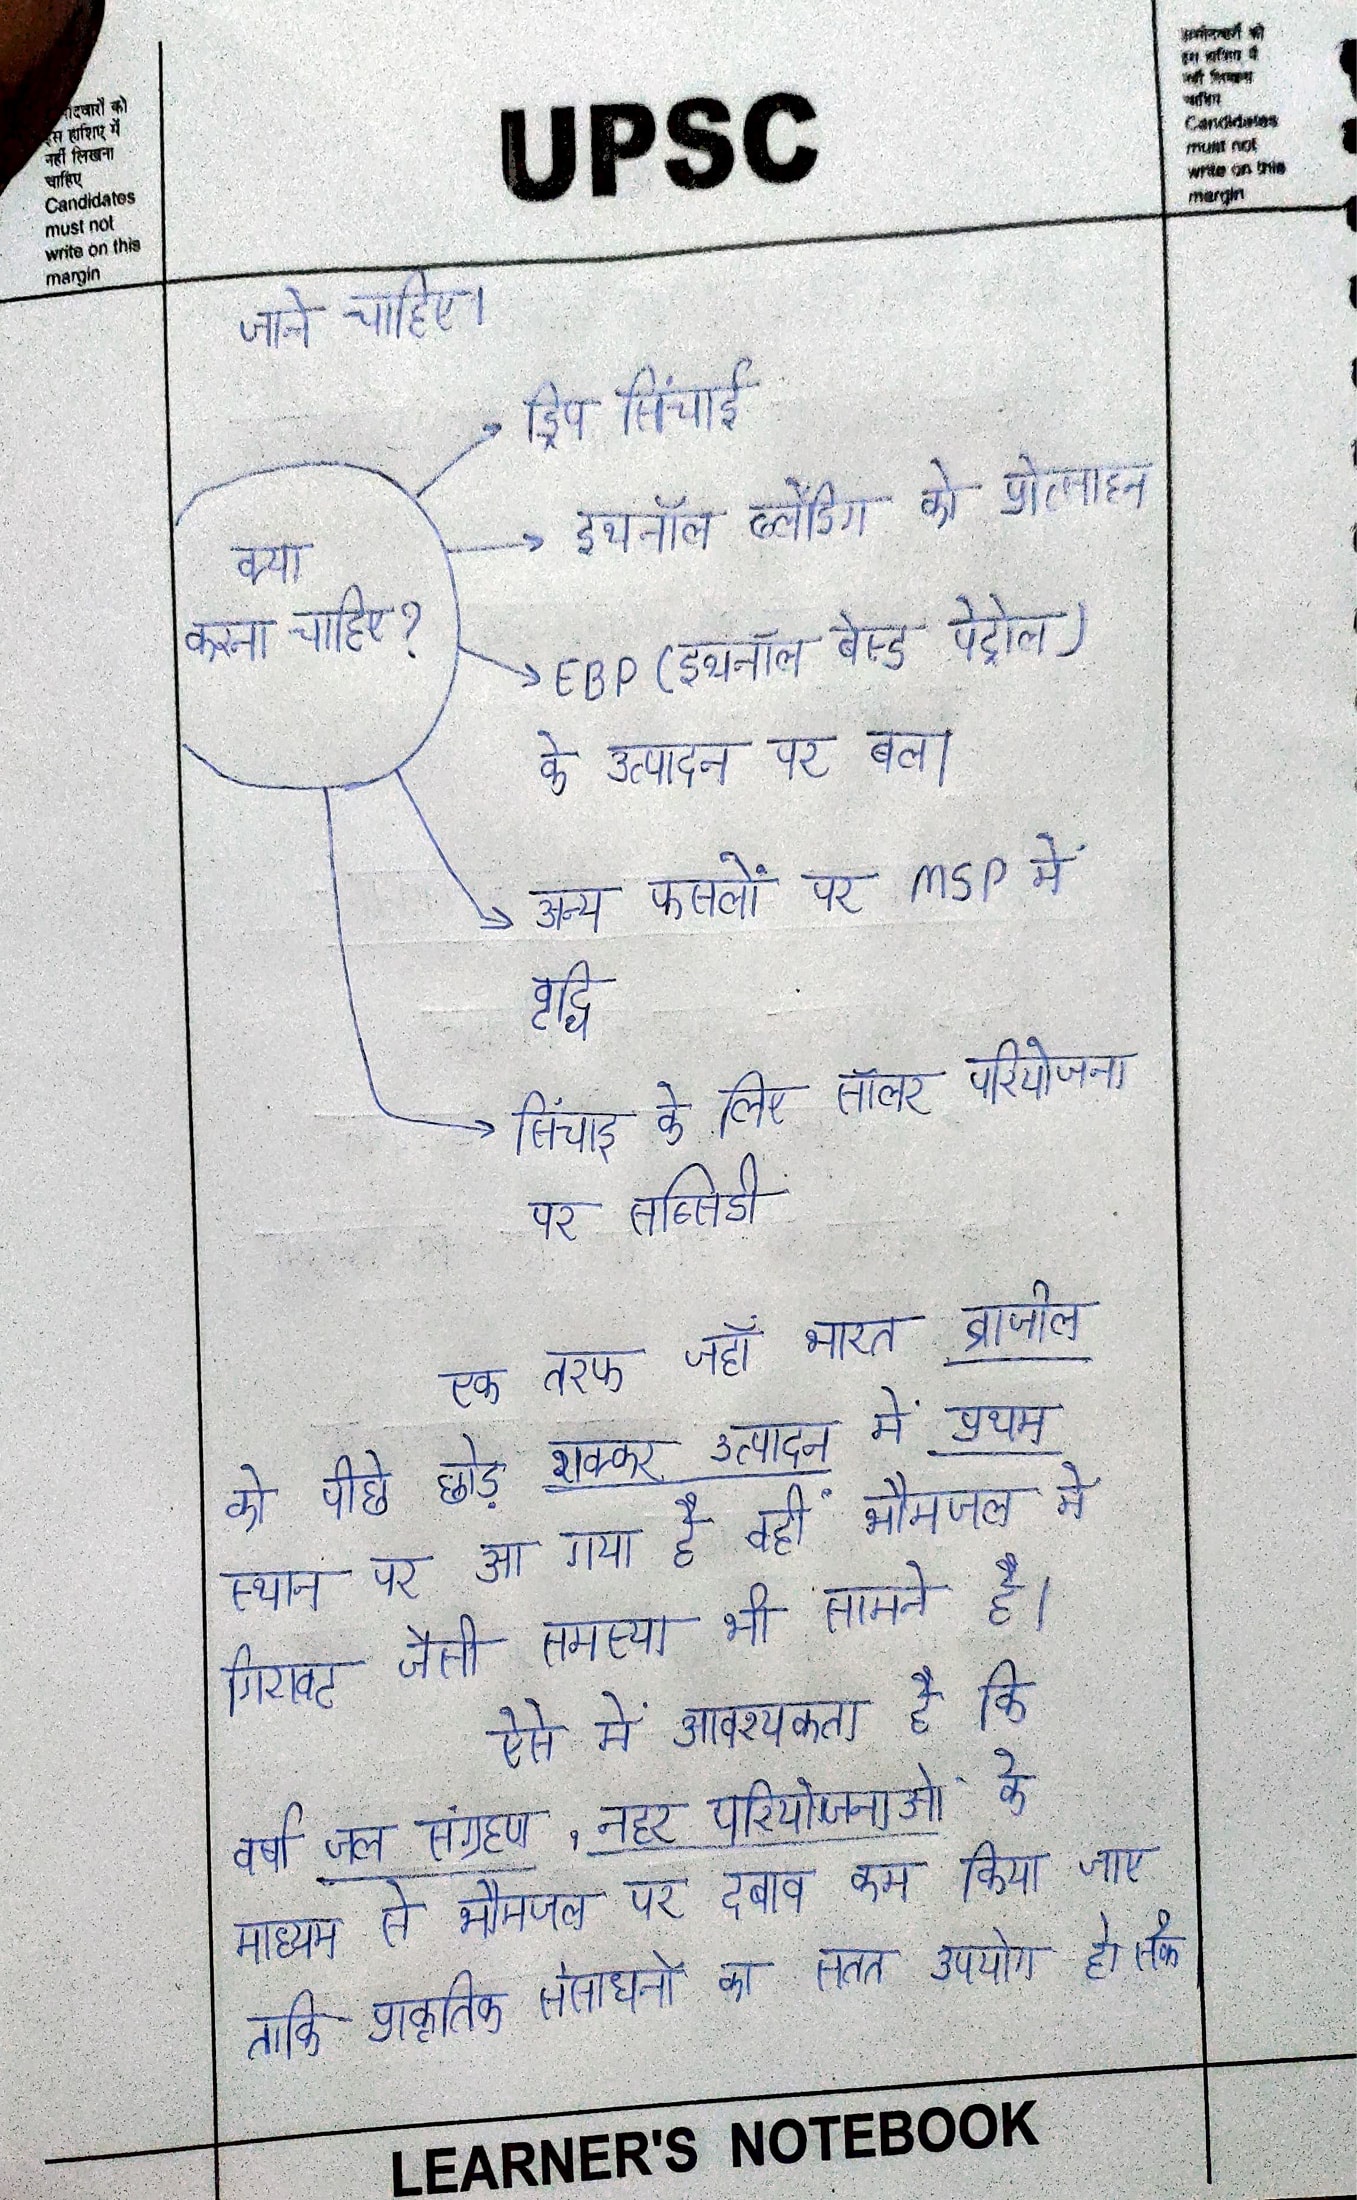 मीदवारों को
इस हाशिए में
नहीं लिखना
चाहिए
Candidates
must not
write on this
margin
UPSC
उम्मीदवारों को
इस हाशिए में
नहीं लिखना
चाहिए
Candidates
must not
write on this
margin
जाने चाहिए।
क्या
करना चाहिए?
ड्रिप सिंचाई
इथनॉल ब्लेंडिग को प्रोत्साहन
EBP (इथनॉल बेस्ड पेट्रोल)
के उत्पादन पर बल।
अन्य फसलों पर MSP में
वृद्धि
सिंचाइ के लिए सॉलर परियोजना
पर सब्सिडी
एक तरफ जहाँ भारत ब्राजील
को पीछे छोड़ शक्कर उत्पादन में प्रथम
स्थान पर आ गया है वहीं भौमजल में
गिरावट जैसी समस्या भी सामने है।
ऐसे में आवश्यकता है कि
वर्षा जल संग्रहण, नहर परियोजनाओं के
माध्यम से भौमजल पर दबाव कम किया जाए
ताकि प्राकृतिक संसाधनों का सतत उपयोग हो सके
LEARNER'S NOTEBOOK